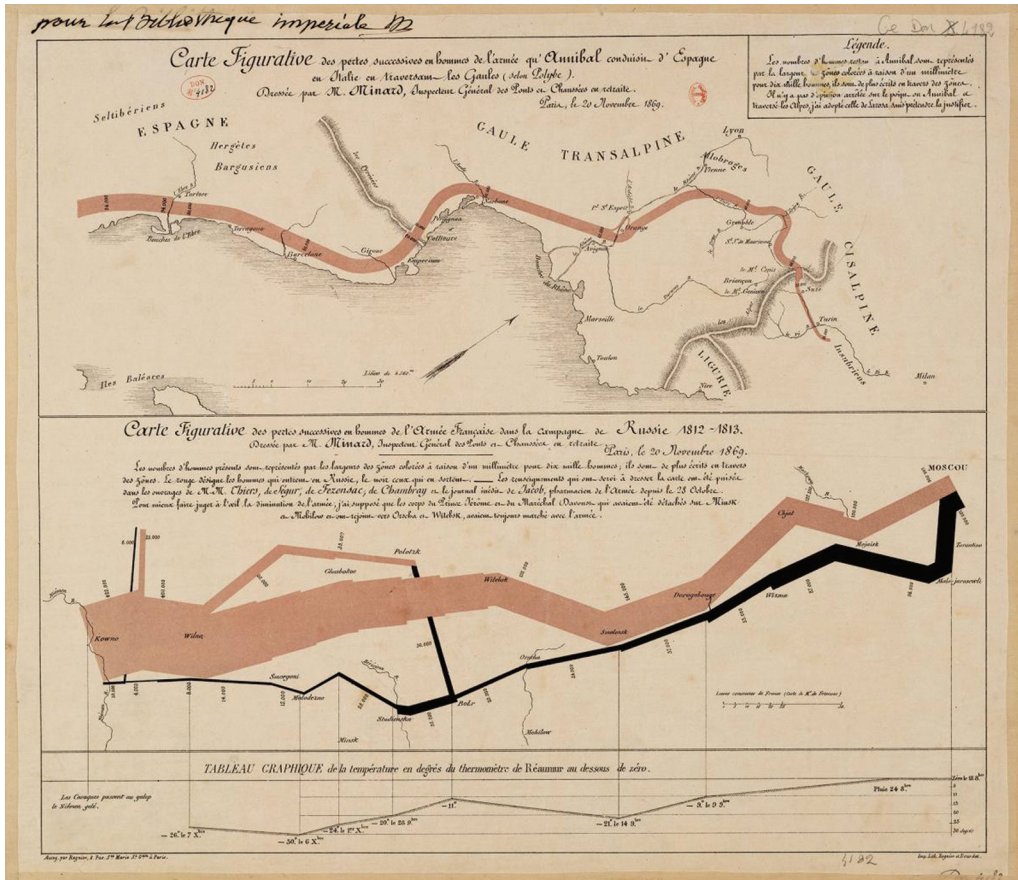 pour la Bibliothèque impériale M
Ge Don 4182
Carte Figurative des pertes successives en hommes de l'armée qu'Annibal conduisit d'Espagne
en Italie en traversant les Gaules (selon Polybe).
Dressée par M. Minard, Inspecteur Général des Ponts et Chaussées en retraite.
Paris, le 20 Novembre 1869.
DON
4182
Légende.
Les nombres d'hommes restant à Annibal sont représentés
par la largeur des zônes colorées à raison d'un millimètre
pour dix mille hommes; ils sont de plus écrits en travers des zônes.
Il n'y a pas d'opinion arrêtée sur le point où Annibal a
traversé les Alpes, j'ai adopté celle de Larosa sans prétendre la justifier.
Seltibériens
ESPAGNE
Hergètes
Bargusiens
GAULE TRANSALPINE
Lyon
Allobroges
Vienne
GAULE
CISALPINE
les Pyrénées
Tortose
Bouches de l'Ebre
Tarragone
Barcelone
Girone
Emporium
Perpignan
Collioure
Narbonne
Pt. St. Esprit
Orange
Avignon
Grenoble
St. Jn. de Maurienne
le Mt. Cenis
Briançon
le Mt. Genèvre
Suze
Turin
Insubriens
Milan
Bouches du Rhône
Marseille
Toulon
les Alpes
LIGURIE
Nice
Iles Baléares
Carte Figurative des pertes successives en hommes de l'Armée Française dans la campagne de Russie 1812-1813.
Dressée par M. Minard, Inspecteur Général des Ponts et Chaussées en retraite.
Paris, le 20 Novembre 1869.
Les nombres d'hommes présents sont représentés par les largeurs des zônes colorées à raison d'un millimètre pour dix mille hommes; ils sont de plus écrits en travers
des zônes. Le rouge désigne les hommes qui entrent en Russie, le noir ceux qui en sortent. Les renseignements qui ont servi à dresser la carte ont été puisés
dans les ouvrages de M.M. Thiers, de Ségur, de Fezensac, de Chambray et le journal inédit de Jacob, pharmacien de l'Armée depuis le 28 Octobre.
Pour mieux faire juger à l'œil la diminution de l'armée, j'ai supposé que les corps du Prince Jérôme et du Maréchal Davoust qui avaient été détachés sur Minsk
et Mohilow et ont rejoint vers Orscha et Witebsk, avaient toujours marché avec l'armée.
MOSCOU
Chjat
Mojaisk
Tarantino
Malo-jarosewli
6.000
22.000
Polotzk
Gloubokoe
Witebsk
Dorogobouge
Wizma
Smolensk
Kowno
Wilna
Orscha
Smorgoni
Molodezno
Bobr
Studienska
Minsk
Mohilow
Lieues communes de France (Carte de M. de Fezensac)
TABLEAU GRAPHIQUE de la température en degrés du thermomètre de Réaumur au dessous de zéro.
Les Cosaques passent au galop
le Niémen gelé.
Zéro le 18 8bre
Pluie 24 8bre
- 9° le 9 9bre
- 21° le 14 9bre
- 11°
- 20° le 28 9bre
- 24° le 1er Xbre
- 30° le 6 Xbre
- 26° le 7 Xbre
Autog. par Regnier, 8, Pas. Ste. Marie St. Gain à Paris.
Imp. Lith. Regnier et Dourdet.
4182